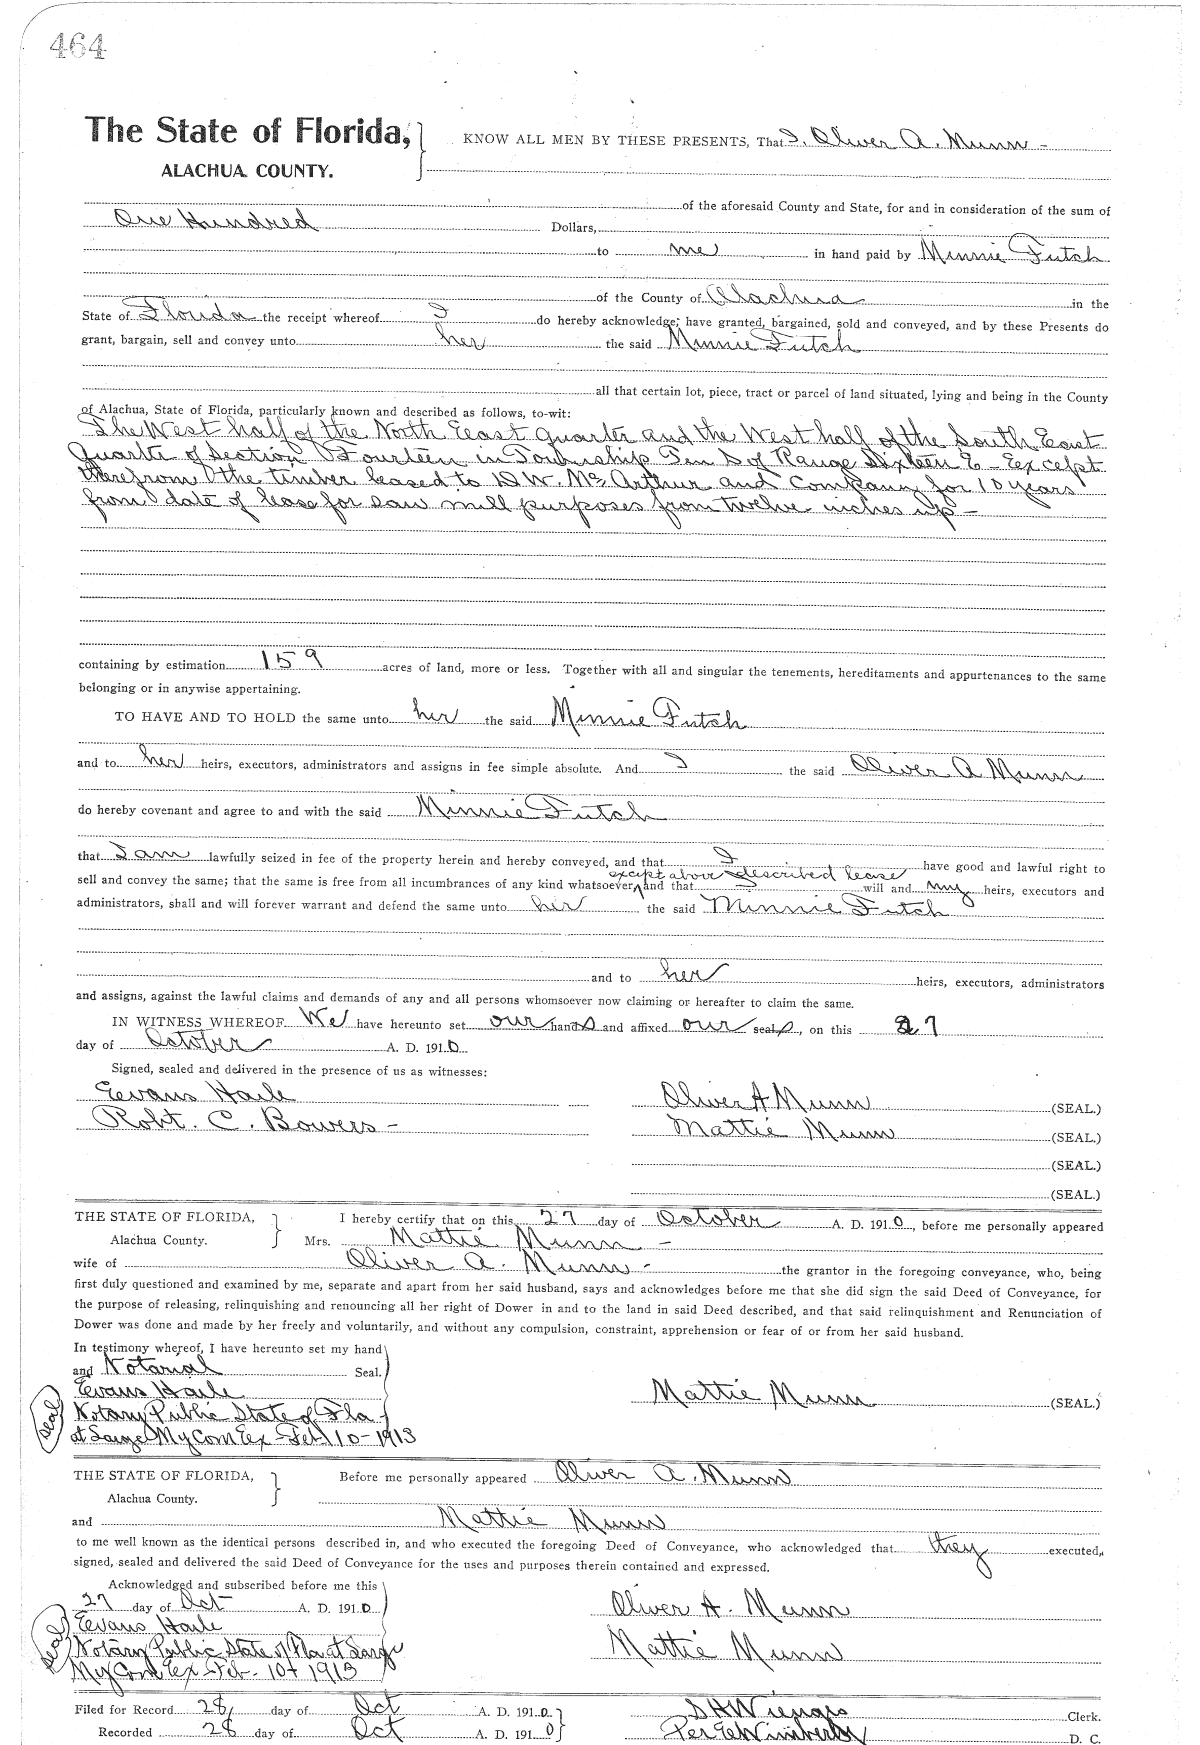 464
The State of Florida, KNOW ALL MEN BY THESE PRESENTS, That I, Oliver A. Munn -
ALACHUA COUNTY.
of the aforesaid County and State, for and in consideration of the sum of
One Hundred Dollars,
to me in hand paid by Minnie Futch
of the County of Alachua in the
State of Florida the receipt whereof I do hereby acknowledge; have granted, bargained, sold and conveyed, and by these Presents do
grant, bargain, sell and convey unto her the said Minnie Futch
all that certain lot, piece, tract or parcel of land situated, lying and being in the County
of Alachua, State of Florida, particularly known and described as follows, to-wit:
The West half of the North East quarter and the West half of the South East
Quarter of Section Fourteen in Township Ten S of Range Sixteen E - Except
therefrom the timber leased to D W. Mc Arthur and Company for 10 years
from date of lease for saw mill purposes from twelve inches up -
containing by estimation 159 acres of land, more or less. Together with all and singular the tenements, hereditaments and appurtenances to the same
belonging or in anywise appertaining.
TO HAVE AND TO HOLD the same unto her the said Minnie Futch
and to her heirs, executors, administrators and assigns in fee simple absolute. And I the said Oliver A Munn
do hereby covenant and agree to and with the said Minnie Futch
that I am lawfully seized in fee of the property herein and hereby conveyed, and that I have good and lawful right to
except above described lease
sell and convey the same; that the same is free from all incumbrances of any kind whatsoever, and that I will and my heirs, executors and
administrators, shall and will forever warrant and defend the same unto her the said Minnie Futch
and to her heirs, executors, administrators
and assigns, against the lawful claims and demands of any and all persons whomsoever now claiming or hereafter to claim the same.
IN WITNESS WHEREOF We have hereunto set our hands and affixed our seals, on this 27
day of October A. D. 1910
Signed, sealed and delivered in the presence of us as witnesses:
Evans Haile Oliver A Munn (SEAL.)
Robt. C. Bowers - Mattie Munn (SEAL.)
(SEAL.)
(SEAL.)
THE STATE OF FLORIDA, I hereby certify that on this 27 day of October A. D. 1910, before me personally appeared
Alachua County. Mrs. Mattie Munn -
wife of Oliver A. Munn - the grantor in the foregoing conveyance, who, being
first duly questioned and examined by me, separate and apart from her said husband, says and acknowledges before me that she did sign the said Deed of Conveyance, for
the purpose of releasing, relinquishing and renouncing all her right of Dower in and to the land in said Deed described, and that said relinquishment and Renunciation of
Dower was done and made by her freely and voluntarily, and without any compulsion, constraint, apprehension or fear of or from her said husband.
In testimony whereof, I have hereunto set my hand
and Notarial Seal.
Evans Haile Mattie Munn (SEAL.)
seal Notary Public State of Fla
at Large My Com Ex Feb 10 - 1913
THE STATE OF FLORIDA, Before me personally appeared Oliver A. Munn
Alachua County.
and Mattie Munn
to me well known as the identical persons described in, and who executed the foregoing Deed of Conveyance, who acknowledged that they executed,
signed, sealed and delivered the said Deed of Conveyance for the uses and purposes therein contained and expressed.
Acknowledged and subscribed before me this
27 day of Oct A. D. 1910 Oliver A. Munn
Evans Haile
seal Notary Public State of Fla at Large Mattie Munn
My Com Ex Feb. 10 1913
Filed for Record 28, day of Oct A. D. 1910. S H Wienges Clerk.
Recorded 28 day of Oct A. D. 1910 Per E Wimberly D. C.